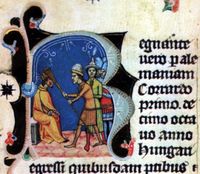 Regnante
vero p al
maniam
Corrardo
primo. de
cimo octa
uo anno
Hungari
egressi quibusdam ptibus